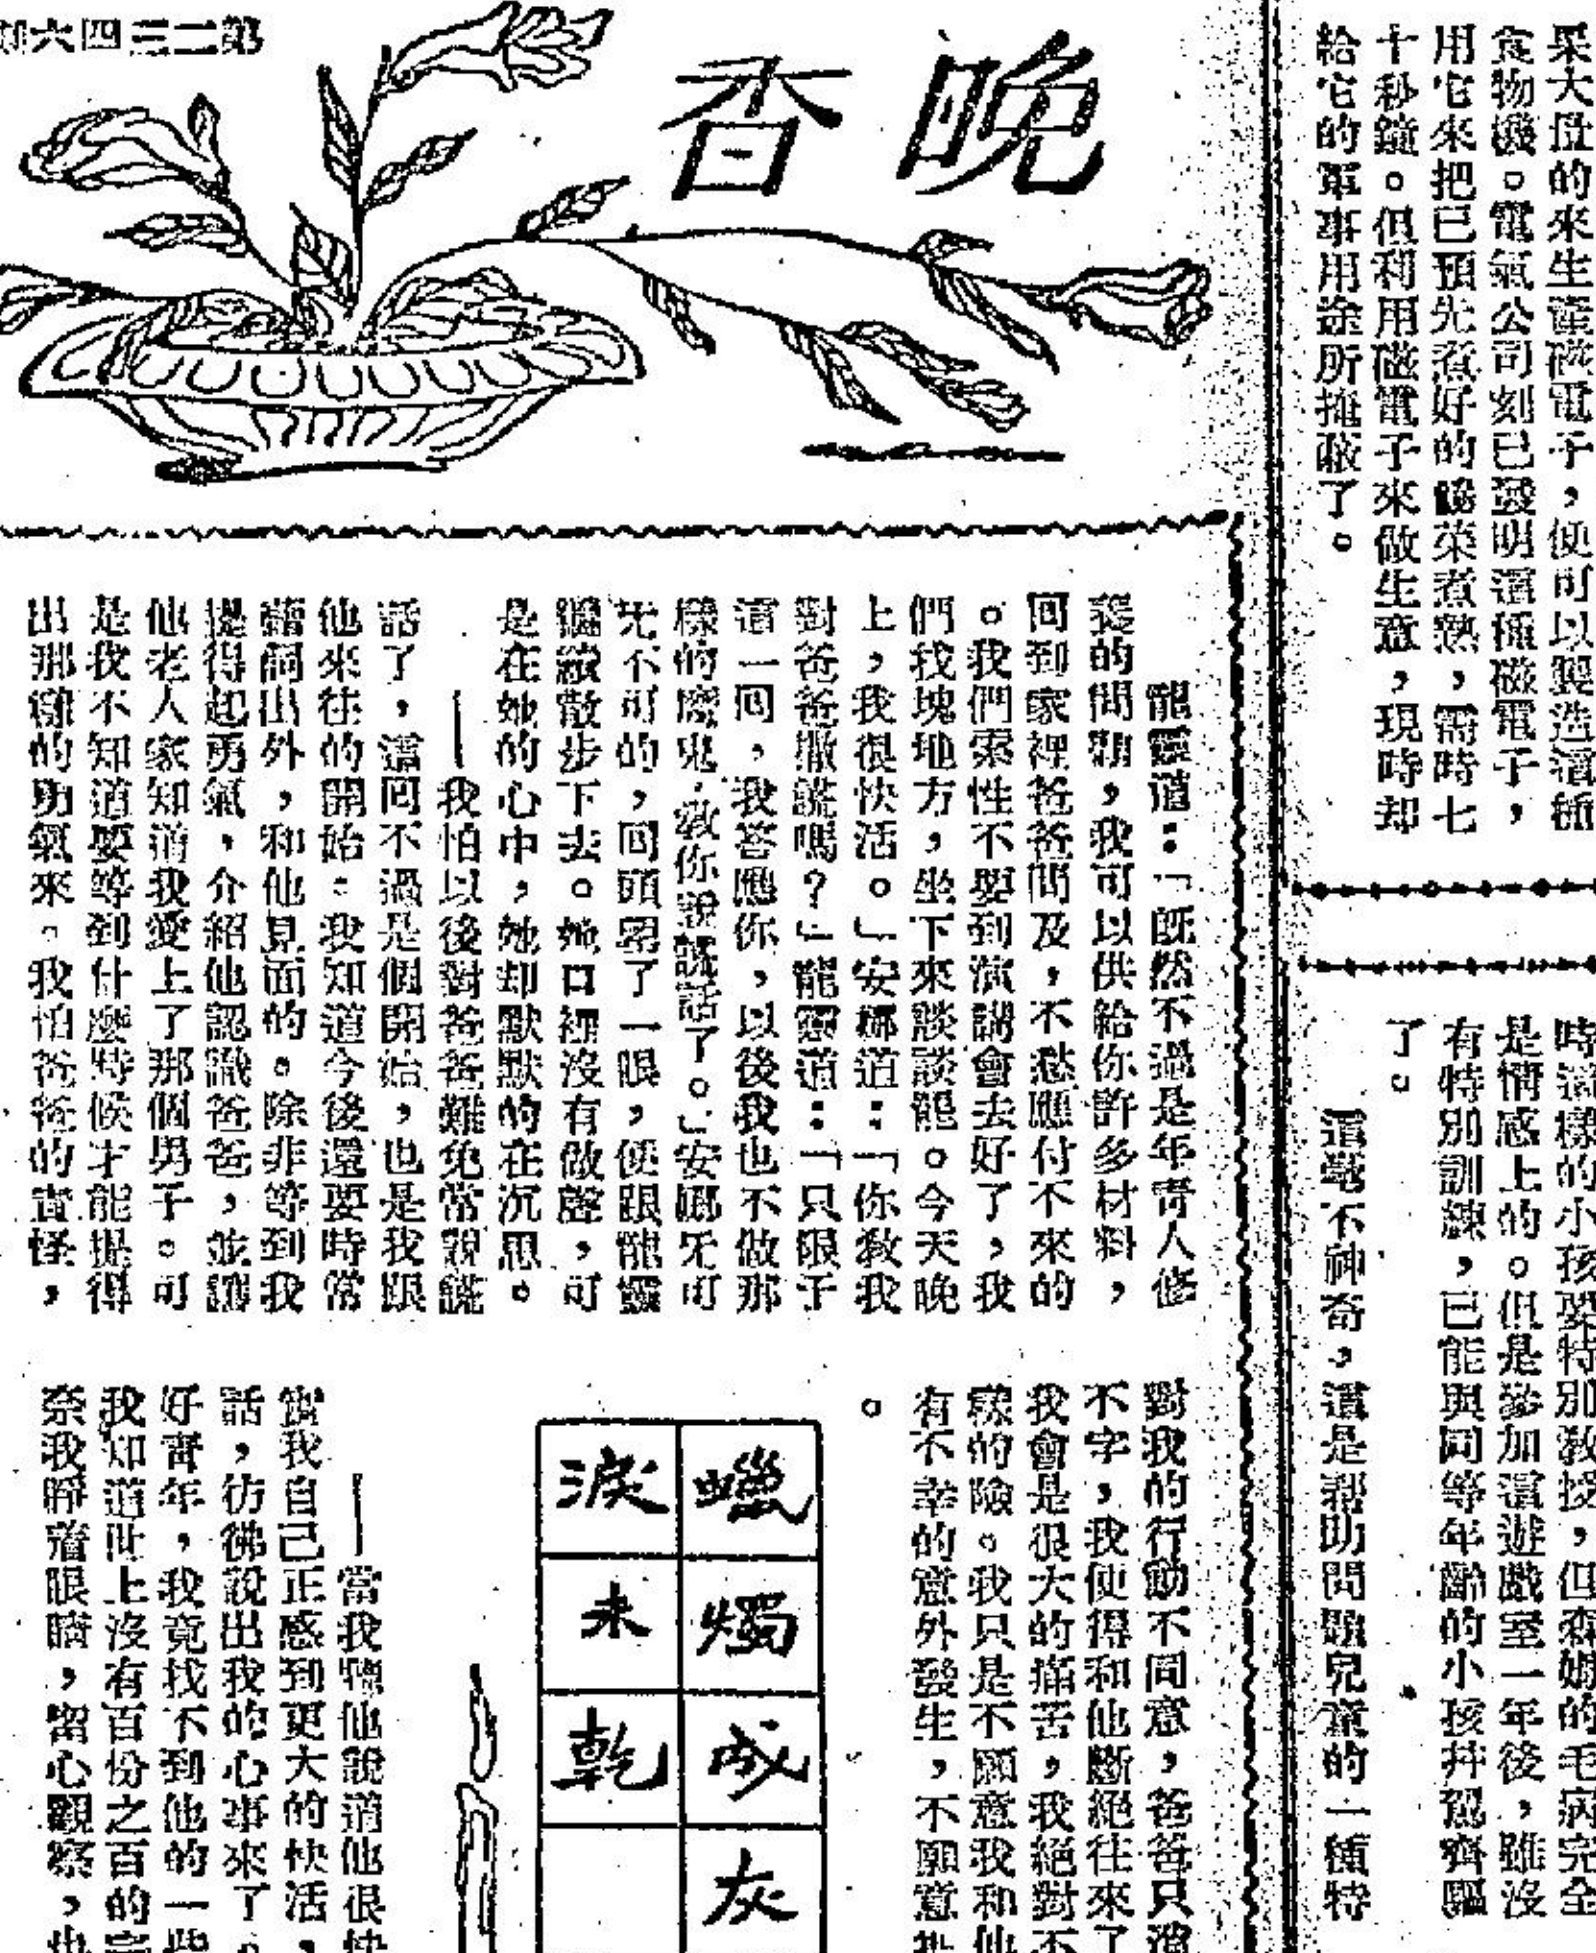 果大量的來生產磁電子，便可以製造這種
食物機。電氣公司刻已發明這種磁電子，
用它來把已預先煮好的餸菜煮熟，需時七
十秒鐘。但利用磁電子來做生意，現時却
給它的軍事用途所掩蔽了。
時這樣的小孩要特別敎授，但森姆的毛病完全
是情感上的。但是參加這遊戲室一年後，雖沒
有特別訓練，已能與同等年齡的小孩幷駕齊驅
了。
這毫不神奇，這是帮助問題兒童的一種特
晚香
第二三四六
龍靈道：「旣然不過是年靑人修
養的問題，我可以供給你許多材料，
回到家裡爸爸問及，不愁應付不來的
。我們索性不要到演講會去好了，我
們找塊地方，坐下來談談罷。今天晚
上，我很快活。」安娜道：「你敎我
對爸爸撒謊嗎？」龍靈道：「只限于
這一回，我答應你，以後我也不做那
樣的魔鬼，敎你說謊話了。」安娜旡可
旡不可的，回頭望了一眼，便跟龍靈
繼續散步下去。她口裡沒有做聲，可
是在她的心中，她却默默的在沉思。
──我怕以後對爸爸難免常說謊
話了，這回不過是個開始，也是我跟
他來往的開始。我知道今後還要時常
藉詞出外，和他見面的。除非等到我
提得起勇氣，介紹他認識爸爸，並讓
他老人家知道我愛上了那個男子。可
是我不知道要等到什麼時候才能提得
出那種的勇氣來。我怕爸爸的責怪，
對我的行動不同意，爸爸只消
不字，我便得和他斷絕往來了
我會是很大的痛苦，我絕對不
樣的險。我只是不願意我和他
有不幸的意外發生，不願意
。
蠟燭成灰
淚未乾
──當我聽他說道他很快
實我自己正感到更大的快活，
話，彷彿說出我的心事來了。
好靑年，我竟找不到他的一些
我知道世上沒有百份之百的完
奈我睜着眼睛，留心觀察，也